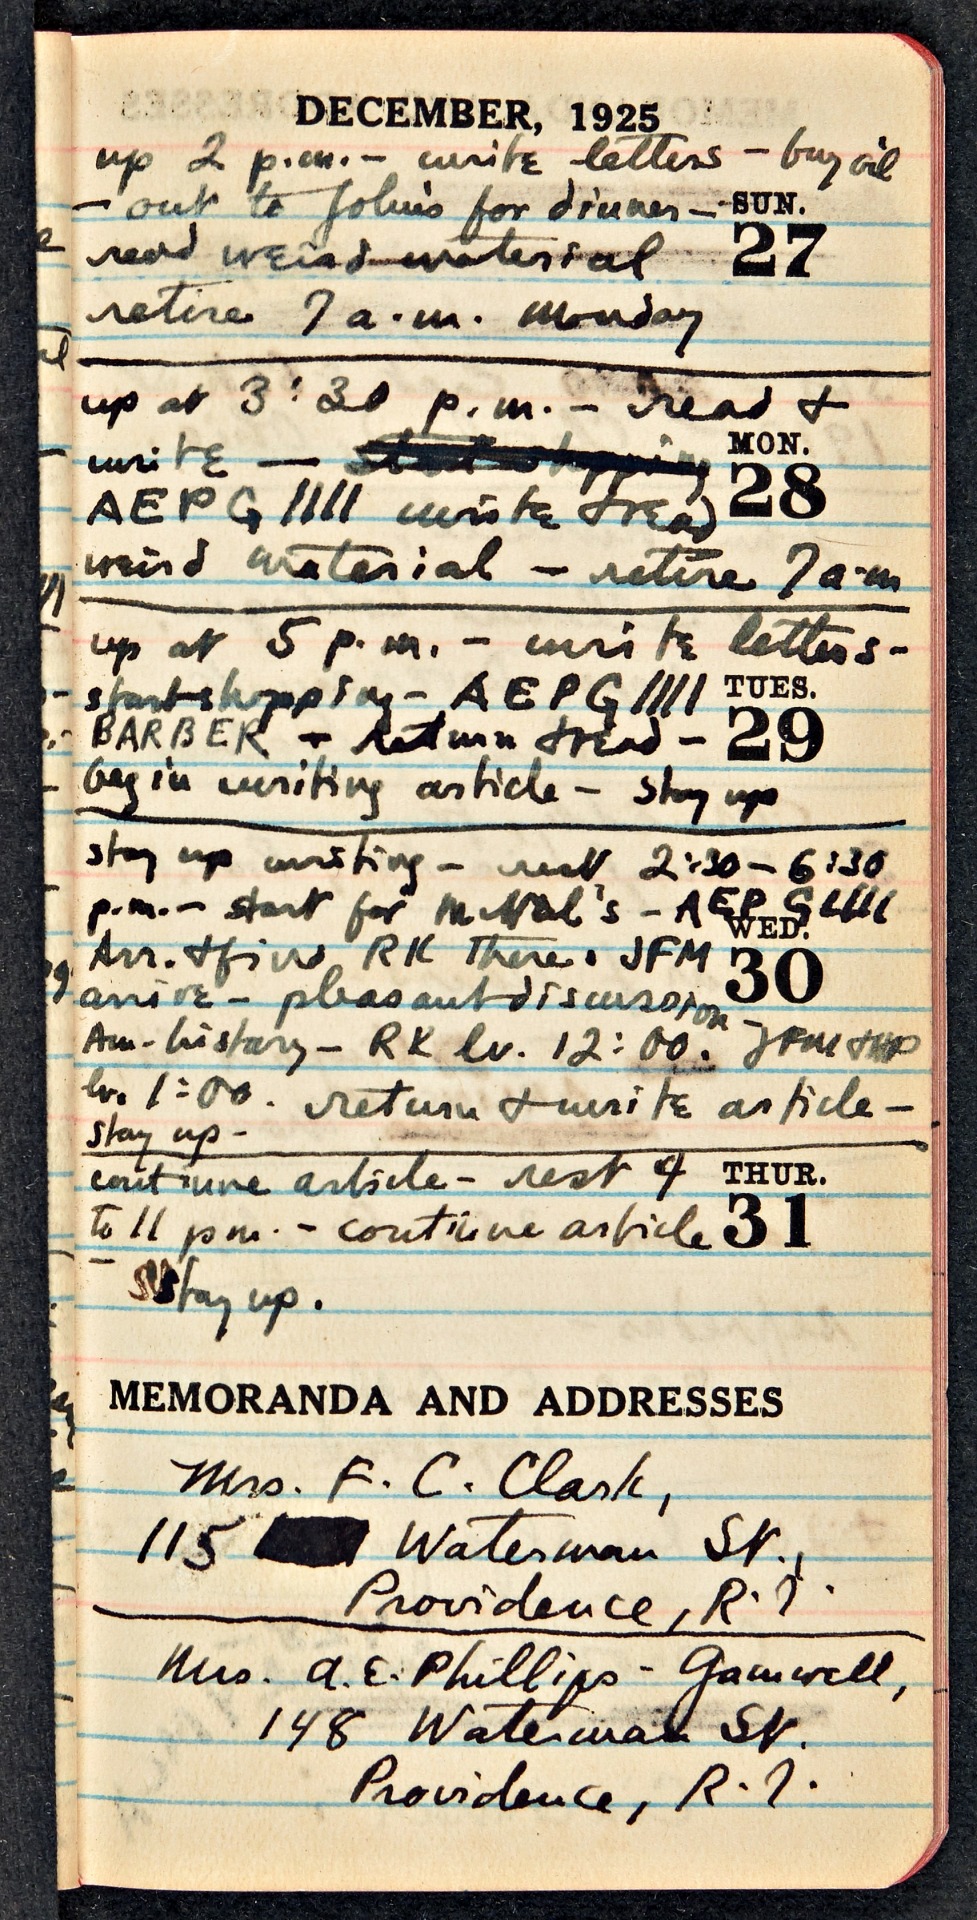 DECEMBER, 1925
up 2 p.m. – write letters – buy oil
– out to John's for dinner –
SUN.
27
read weird material
retire 7 a.m. Monday
up at 3:30 p.m. – read &
write —
MON.
28
AEPG //// write & read
weird material – retire 7 a.m
up at 5 p.m. – write letters –
start shopping – AEPG ////
TUES.
29
BARBER – return & read –
begin writing article – stay up
stay up writing – rest 2:30 – 6:30
p.m. – start for McNeil's – AEPG ////
WED.
30
Arr. & find RK there. JFM
arrive – pleasant discussion –
Am. history – RK lv. 12:00. JFM & HP
lv. 1:00. return & write article –
stay up –
continue article – rest 4
THUR.
31
to 11 p.m. – continue article
– Stay up.
MEMORANDA AND ADDRESSES
Mrs. F. C. Clark,
115 Waterman St.,
Providence, R.I.
Mrs. A. E. Phillips-Gamwell,
148 Waterman St.
Providence, R.I.